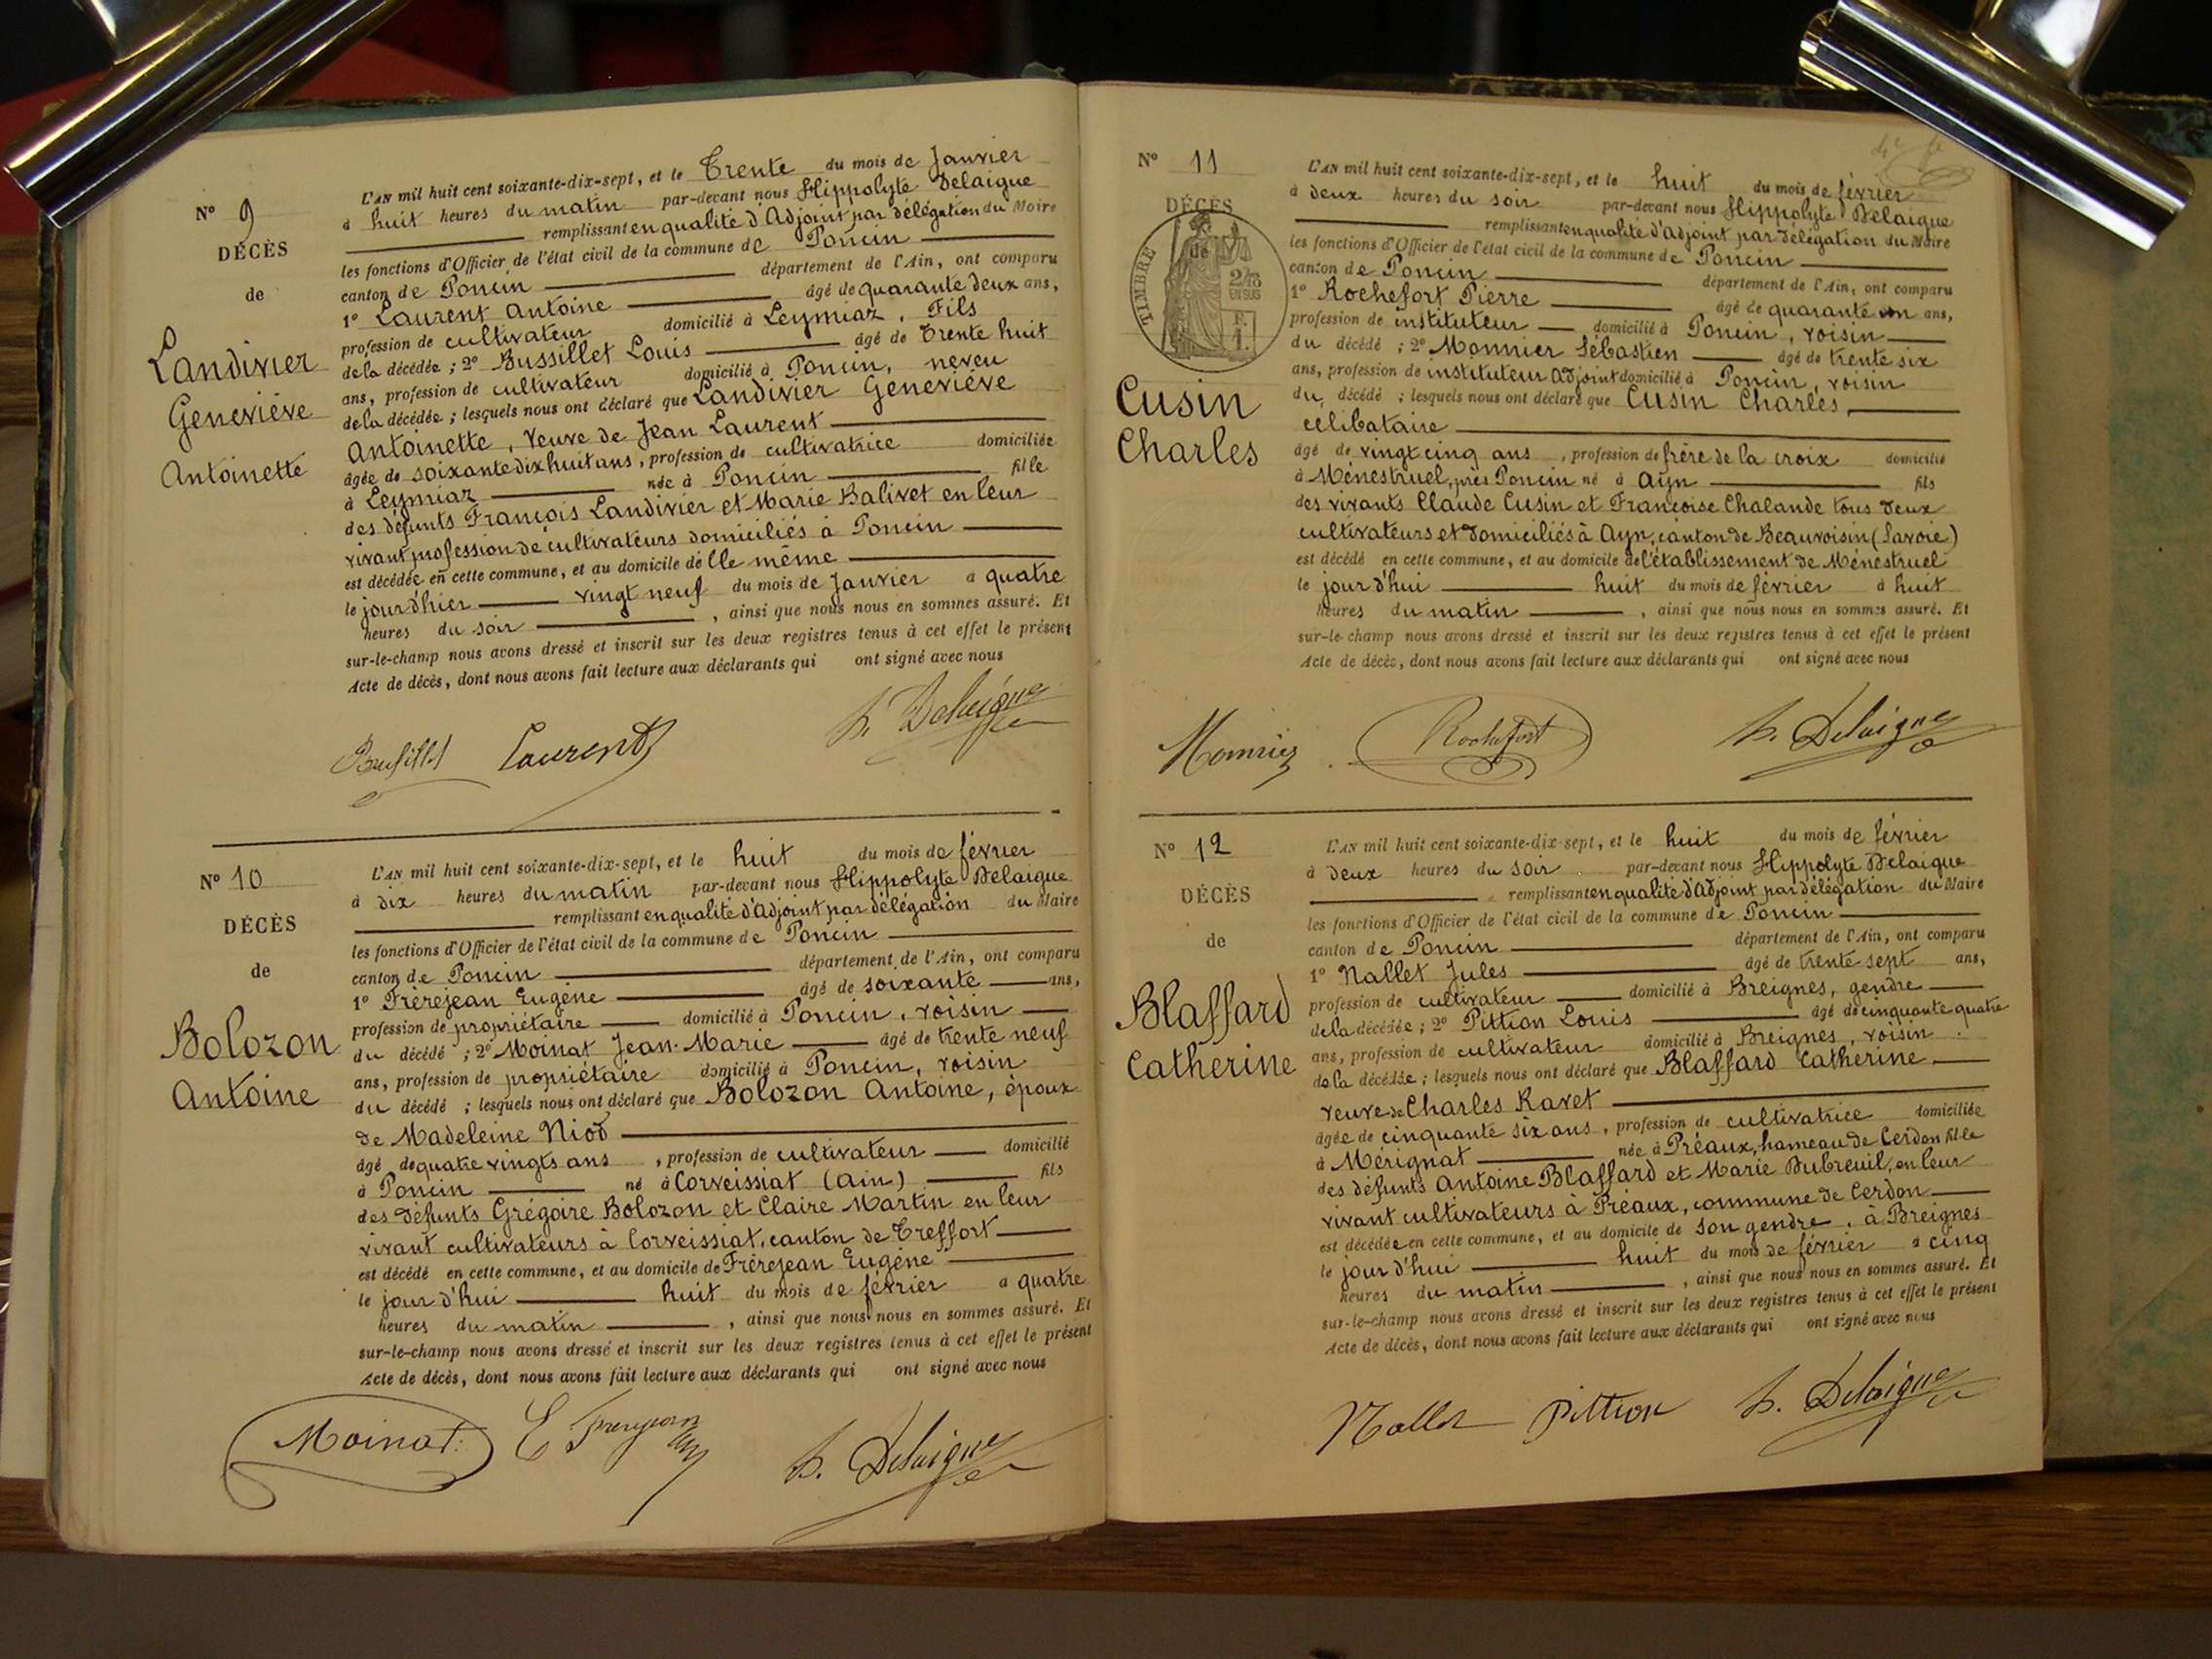 L'AN mil huit cent soixante-dix-sept, et le Trente du mois de Janvier
à huit heures du matin par-devant nous Hippolyte Delaigue
remplissant en qualité d'Adjoint par délégation du Maire
les fonctions d'Officier de l'état civil de la commune de Poncin
canton de Poncin département de l'Ain, ont comparu
1º Laurent Antoine âgé de quarante deux ans,
profession de cultivateur domicilié à Leymiaz, Fils
de la décédée ; 2º Bussillet Louis âgé de trente huit
ans, profession de cultivateur domicilié à Poncin, neveu
de la décédée ; lesquels nous ont déclaré que Landivier Geneviève
Antoinette, Veuve de Jean Laurent
âgée de soixante dix huit ans, profession de cultivatrice domiciliée
à Leymiaz née à Poncin fille
des défunts François Landivier et Marie Balivet en leur
vivant profession de cultivateurs domiciliés à Poncin
est décédée en cette commune, et au domicile de lle même
le jour d'hier vingt neuf du mois de Janvier à quatre
heures du soir , ainsi que nous nous en sommes assuré. Et
sur-le-champ nous avons dressé et inscrit sur les deux registres tenus à cet effet le présent
Acte de décès, dont nous avons fait lecture aux déclarants qui ont signé avec nous
Nº 9
DÉCÈS
de
Landivier
Geneviève
Antoinette
Bussillet Laurent h. Delaigue
Nº 10
DÉCÈS
de
Bolozon
Antoine
L'AN mil huit cent soixante-dix-sept, et le huit du mois de février
à dix heures du matin par-devant nous Hippolyte Delaigue
remplissant en qualité d'Adjoint par délégation du Maire
les fonctions d'Officier de l'état civil de la commune de Poncin
canton de Poncin département de l'Ain, ont comparu
1º Frèrejean Eugène âgé de soixante ans,
profession de propriétaire domicilié à Poncin, voisin
du décédé ; 2º Moinat Jean-Marie âgé de trente neuf
ans, profession de propriétaire domicilié à Poncin, voisin
du décédé ; lesquels nous ont déclaré que Bolozon Antoine, époux
de Madeleine Niod
âgé de quatre vingts ans , profession de cultivateur domicilié
à Poncin né à Corveissiat (Ain) fils
des défunts Grégoire Bolozon et Claire Martin en leur
vivant cultivateurs à Corveissiat, canton de Treffort
est décédé en cette commune, et au domicile de Frèrejean Eugène
le jour d'hui huit du mois de février à quatre
heures du matin , ainsi que nous nous en sommes assuré. Et
sur-le-champ nous avons dressé et inscrit sur les deux registres tenus à cet effet le présent
Acte de décès, dont nous avons fait lecture aux déclarants qui ont signé avec nous
Moinat E Frerejean h. Delaigue
Nº 11
DÉCÈS
de
TIMBRE
2/10
EN SUS
Cusin
Charles
L'AN mil huit cent soixante-dix-sept, et le huit du mois de février
à deux heures du soir par-devant nous Hippolyte Delaigue
remplissant en qualité d'Adjoint par délégation du Maire
les fonctions d'Officier de l'état civil de la commune de Poncin
canton de Poncin département de l'Ain, ont comparu
1º Rochefort Pierre âgé de quarante un ans,
profession de instituteur domicilié à Poncin, voisin
du décédé ; 2º Monnier Sébastien âgé de trente six
ans, profession de instituteur Adjoint domicilié à Poncin, voisin
du décédé ; lesquels nous ont déclaré que Cusin Charles,
célibataire
âgé de vingt cinq ans , profession de frère de la croix domicilié
à Ménestruel, près Poncin né à Ayn fils
des vivants Claude Cusin et Françoise Chalande tous deux
cultivateurs et domiciliés à Ayn, canton de Beauvoisin (Savoie)
est décédé en cette commune, et au domicile de l'établissement de Ménestruel
le jour d'hui huit du mois de février à huit
heures du matin , ainsi que nous nous en sommes assuré. Et
sur-le-champ nous avons dressé et inscrit sur les deux registres tenus à cet effet le présent
Acte de décès, dont nous avons fait lecture aux déclarants qui ont signé avec nous
Monnier Rochefort h. Delaigue
Nº 12
DÉCÈS
de
Blaffard
Catherine
L'AN mil huit cent soixante-dix-sept, et le huit du mois de février
à deux heures du soir par-devant nous Hippolyte Delaigue
remplissant en qualité d'Adjoint par délégation du Maire
les fonctions d'Officier de l'état civil de la commune de Poncin
canton de Poncin département de l'Ain, ont comparu
1º Nallet Jules âgé de trente sept ans,
profession de cultivateur domicilié à Breignes, gendre
de la décédée ; 2º Pittion Louis âgé de cinquante quatre
ans, profession de cultivateur domicilié à Breignes, voisin
de la décédée ; lesquels nous ont déclaré que Blaffard Catherine
veuve de Charles Ravet
âgée de cinquante six ans, profession de cultivatrice domiciliée
à Mérignat née à Préaux, hameau de Cerdon fille
des défunts Antoine Blaffard et Marie Dubreuil, en leur
vivant cultivateurs à Préaux, commune de Cerdon
est décédée en cette commune, et au domicile de son gendre, à Breignes
le jour d'hui huit du mois de février à cinq
heures du matin , ainsi que nous nous en sommes assuré. Et
sur-le-champ nous avons dressé et inscrit sur les deux registres tenus à cet effet le présent
Acte de décès, dont nous avons fait lecture aux déclarants qui ont signé avec nous
Nallet Pittion h. Delaigue